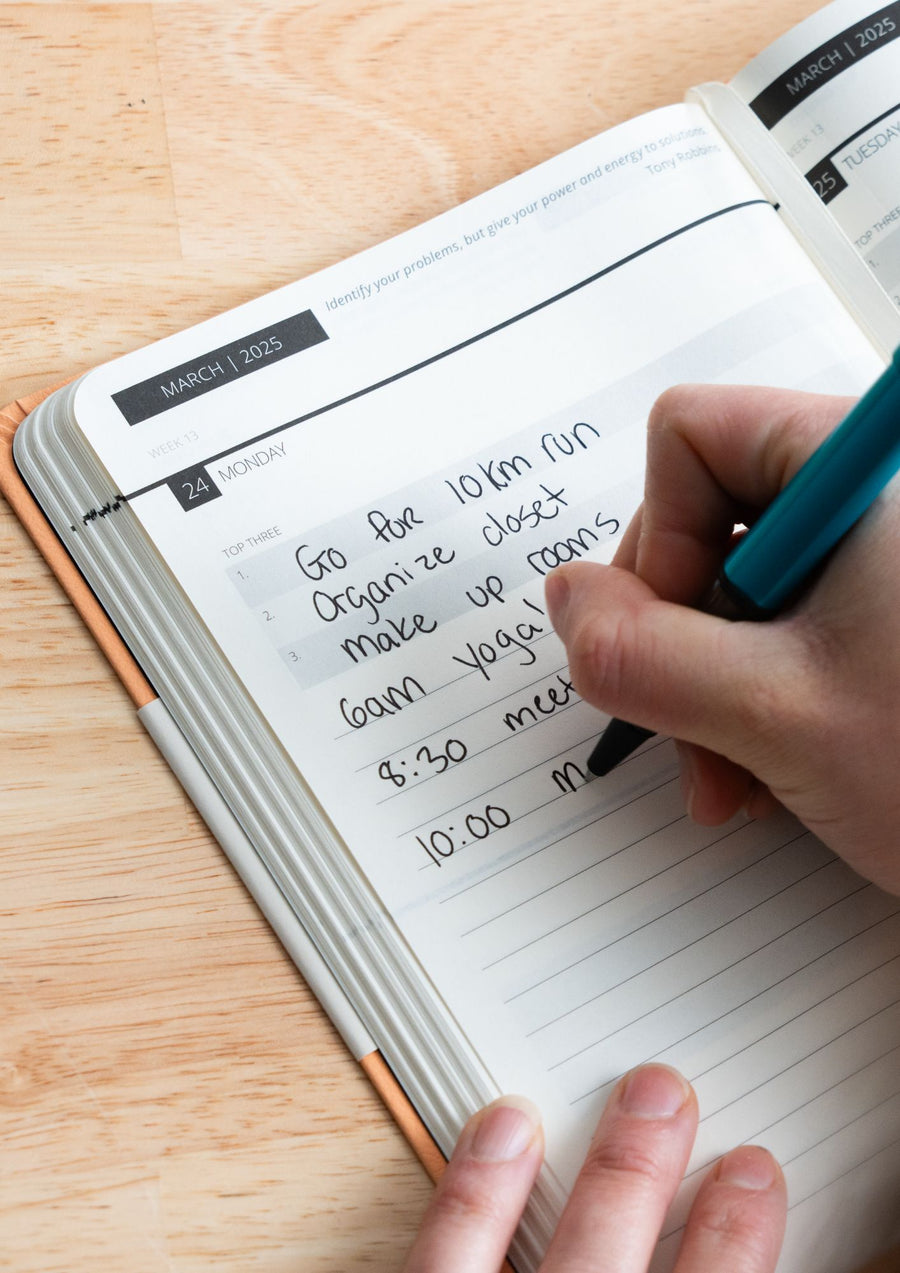 Identify your problems, but give your power and energy to solutions.
Tony Robbins
MARCH | 2025
WEEK 13
24 MONDAY
TOP THREE
1. Go for 10km run
2. Organize closet
3. make up rooms
6am yoga
8:30 meet
10:00 m
MARCH | 2025
WEEK 13
25 TUESDAY
TOP THREE
1.